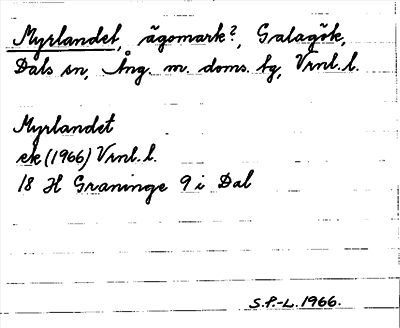 Myrlandet, ägomark?, Galagök,
Dals sn, Ång. m. doms. tg, Vrnl. l.
Myrlandet
ek (1966) Vrnl. l.
18 H Graninge 9 i Dal
S.P-L. 1966.